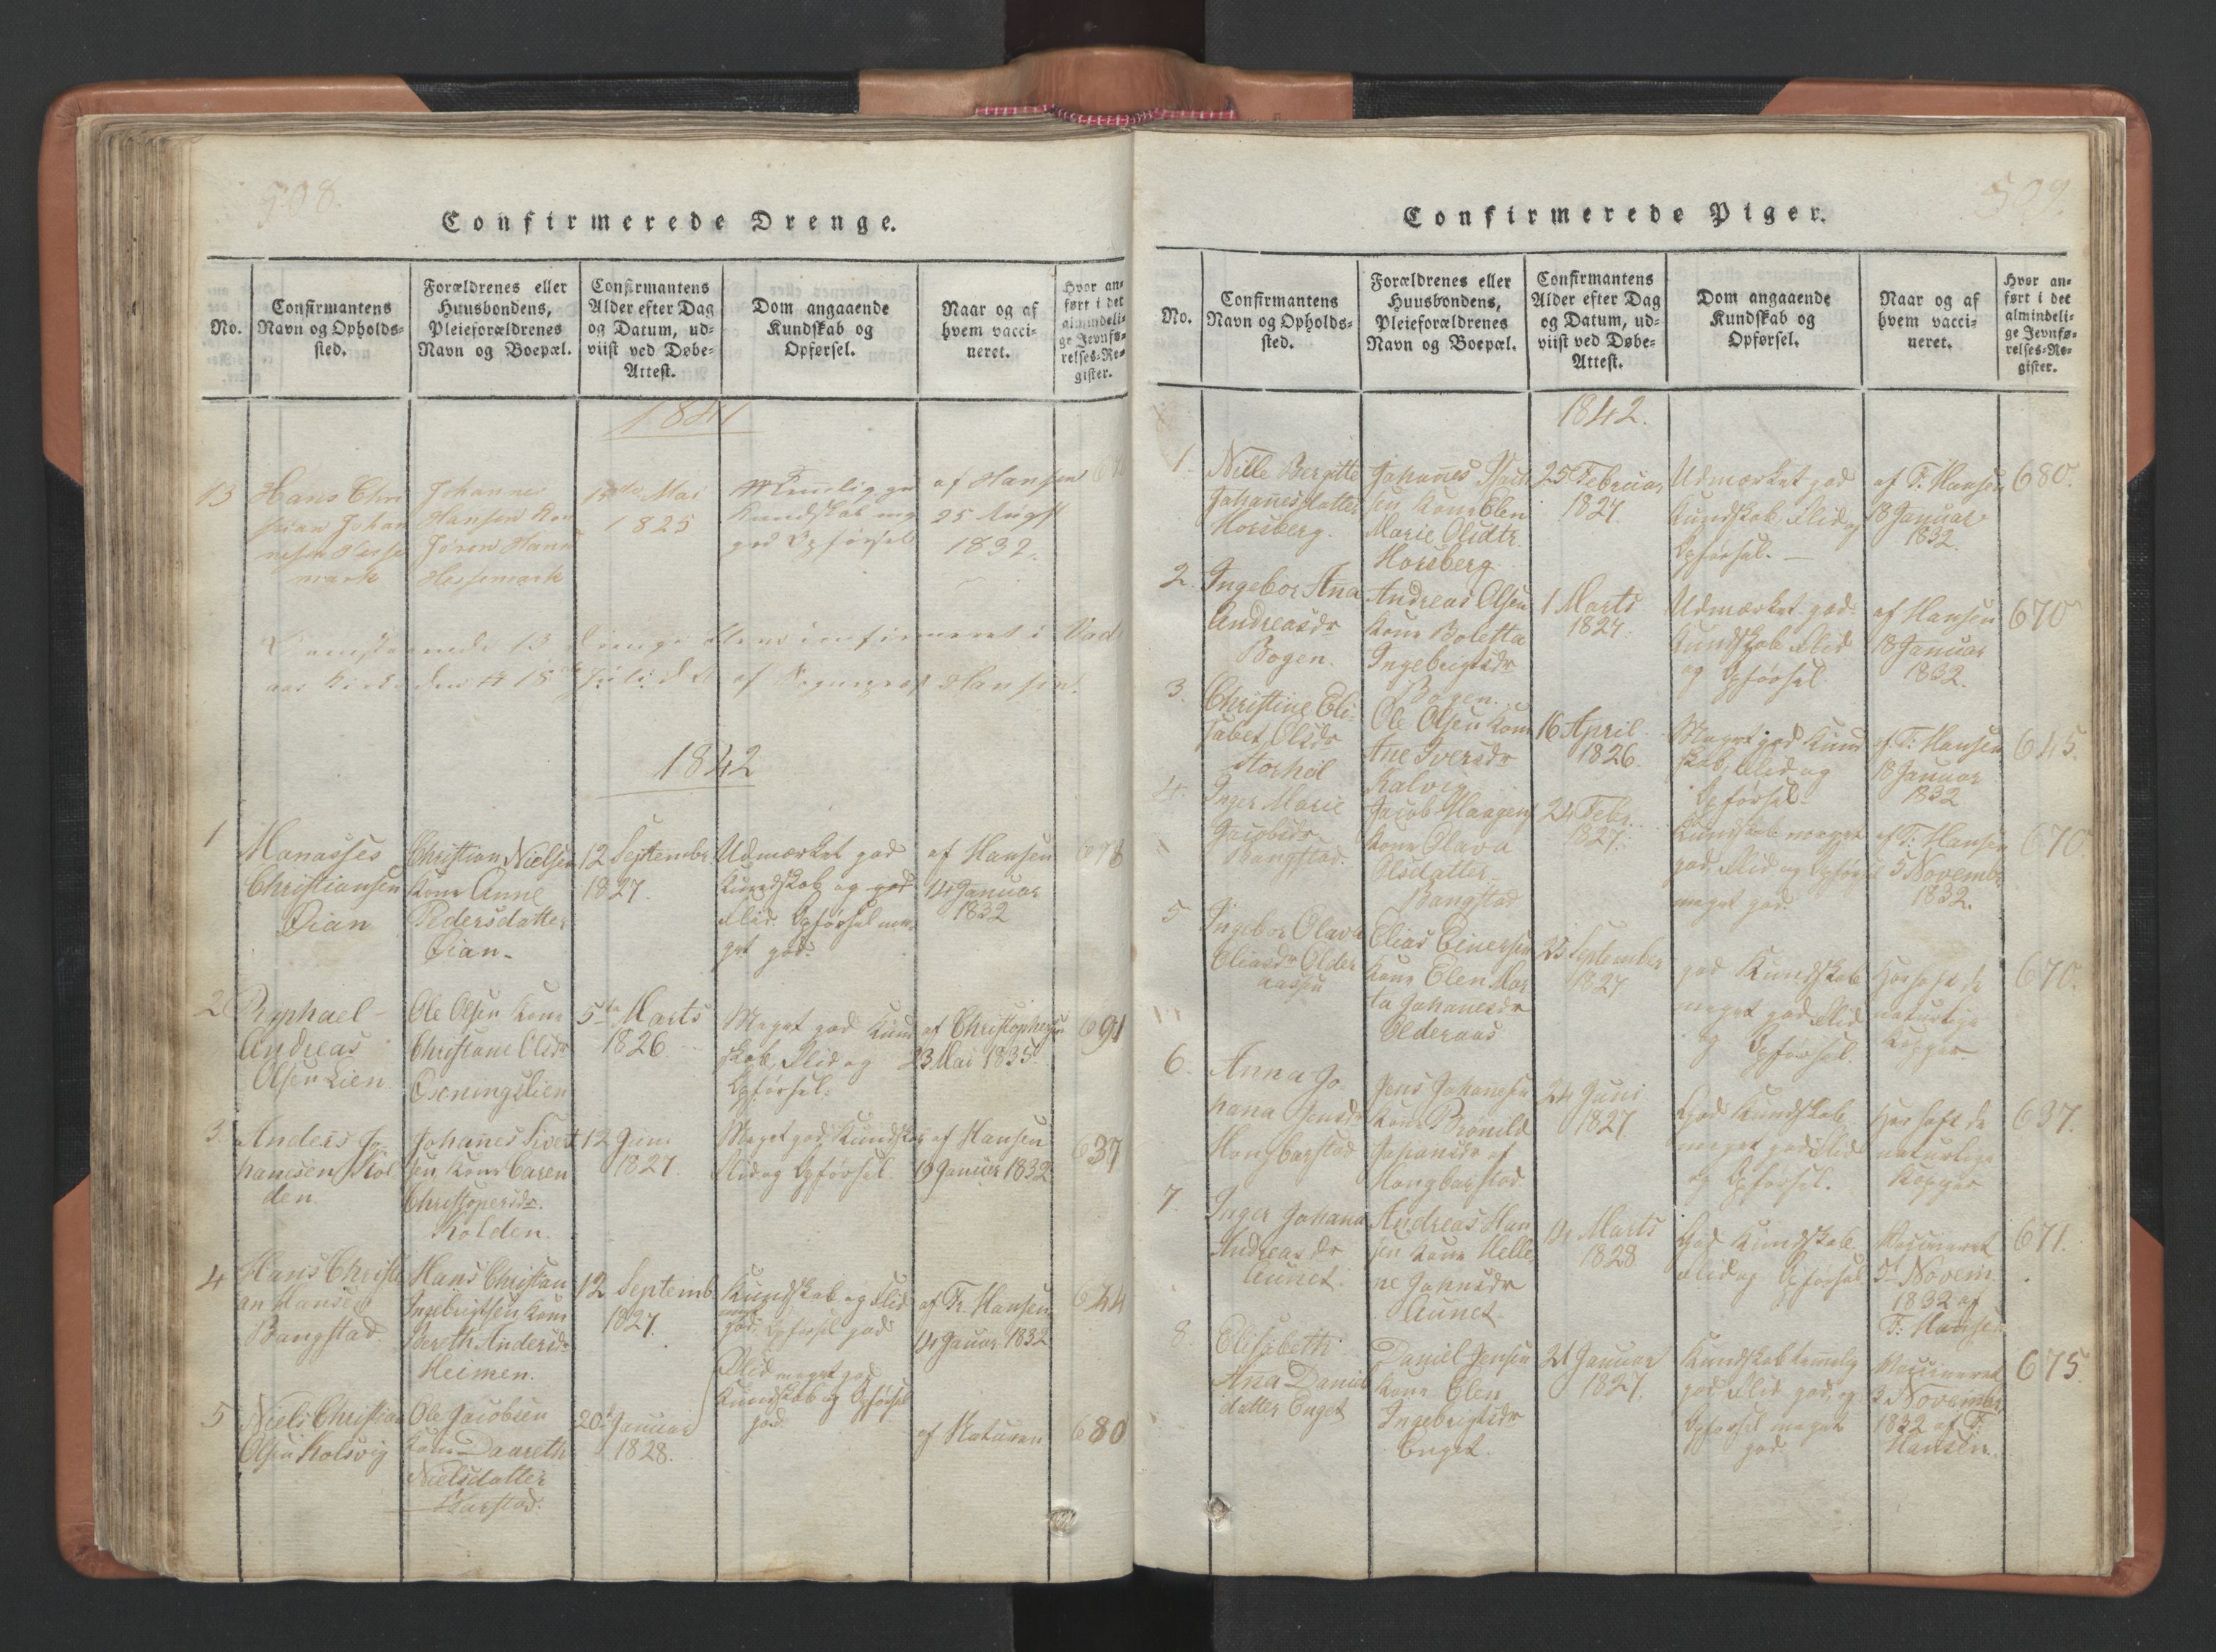 508.
Confirmerede Drenge.
No.
Confirmantens
Navn og Opholds-
sted.
Forældrenes eller
Huusbondens,
Pleieforældrenes
Navn og Boepæl.
Confirmantens
Alder efter Dag
og Datum, ud-
viist ved Døbe-
Attest.
Dom angaaende
Kundskab og
Opførsel.
Naar og af
hvem vacci-
neret.
Hvor an-
ført i det
almindeli-
ge Jevnfø-
relses-Re-
gister.
1841
13
Hans Chri
stian Johan
nesen Hesse
mark
Johannes
Hansen Kon
Jören Hans
Hessemark
Mai
1825
Temelig god
Kundskab meg
god Opførsel
af Hansen
25 August
1832.
13 Drenge confirmeret i
Kirke den 18 Juli af Sognepræst Hansen.
1842
1
Manasses
Christiansen
Dian
Christian Nielsen
Kone Anne
Pedersdatter
Dian.
12 Septembr.
1827.
Udmærket god
Kundskab og god
Flid. Opførsel me-
get god.
af Hansen
14 Januar
1832
698
2
Raphael
Andreas
Olsen Lien
Ole Olsen Kone
Christiane Olsdr
Oxningslien
5te Marts
1826
Meget god Kund
skab, Flid og
Opførsel.
af Christophersen
23 Mai 1835.
691
3
Anders Jo
hannesen Kol
den.
Johanes Sivert
sen, Kone Caren
Christopersdr.
Kolden.
12 Juni
1827.
Meget god Kundskab
Flid og Opførsel.
af Hansen
19 Januar 1832.
637
4
Hans Christi
an Hansen
Bangstad.
Hans Christian
Ingebrigtsen Kone
Bereth Andersdr
Heimen.
12 Septemb.
1827.
Kundskab og Flid
meget
god. Opførsel god
af Fr. Hansen
14 Januar 1832.
644
5
Niels Christian
Olsen Kolsvig
Ole Jacobsen
Kone Daareth
Nielsdatter
20de Januar
1828.
Flid meget god
Kundskab og Opførsel
god.
af Naturen
680
509.
Confirmerede Piger.
No.
Confirmantens
Navn og Opholds-
sted.
Forældrenes eller
Huusbondens,
Pleieforældrenes
Navn og Boepæl.
Confirmantens
Alder efter Dag
og Datum, ud-
viist ved Døbe-
Attest.
Dom angaaende
Kundskab og
Opførsel.
Naar og af
hvem vacci-
neret.
Hvor an-
ført i det
almindeli-
ge Jevnfø-
relses-Re-
gister.
1842.
1.
Nille Bergitte
Johanesdatter
Horsberg.
Johanes
sen, Kone Elen
Marie Olsdtr.
Horsberg.
25 Februar
1827.
Udmærket god
Kundskab, Flid og
Opførsel.
af F. Hansen
18 Januar
1832.
680.
2.
Ingebor Ana
Andreasdr
Bogen.
Andreas Olsen
Kone Boletta
Ingebrigtsdr
Bogen.
1 Marts
1827.
Udmærket god
Kundskab, Flid
og Opførsel
af Hansen
18 Januar
1832.
670
3.
Christine Eli-
sabet Olsdr
Storheil
Ole Olsen Kone
Ane Iversdr
Kalvig
16 April
1826.
Meget god Kund
skab, Flid og
Opførsel.
af F. Hansen
18 Januar
1832
645.
4.
Inger Marie
Jacobsdr
Bangstad.
Jacob Haagens
Kone Olava
Olsdatter
Bangstad
24 Febr.
1827.
Kundskab meget
god, Flid og Opførsel
meget god.
af F. Hansen
5 Novembr
1832.
670.
5
Ingebor Olava
Eliasdr Older
aassen
Elias Einersen
Kone Elen Mar
ta Johanesdr
Olderaas
23 September
1827
god Kundskab
meget god Flid
og Opførsel.
Har haft de
naturlige
Kopper
670.
6.
Anna Jo-
hana Jensdr
Hongbarstad
Jens Johanesen
Kone Bronild
Johansdr af
Hongbarstad
24 Juni
1827.
God Kundskab
meget god Flid
og Opførsel.
Har haft de
naturlige
Kopper
637.
7.
Inger Johana
Andreasdr
Aunet.
Andreas Han
sen Kone Helle
ne Johnsdr
Aunet.
14 Marts
1828
God Kundskab
Flid og Opførsel
Vacineret
5t Novem
1832 af
F. Hansen
671.
8.
Elisabeth
Ana Daniel
datter Enget
Daniel Jensen
Kone Elen
Ingebrigtsdr
Enget.
21 Januar
1827.
Kundskab temelig
god, Flid god, og
Opførsel meget
god.
Vacineret
3 November
1832 af F.
Hansen.
675.